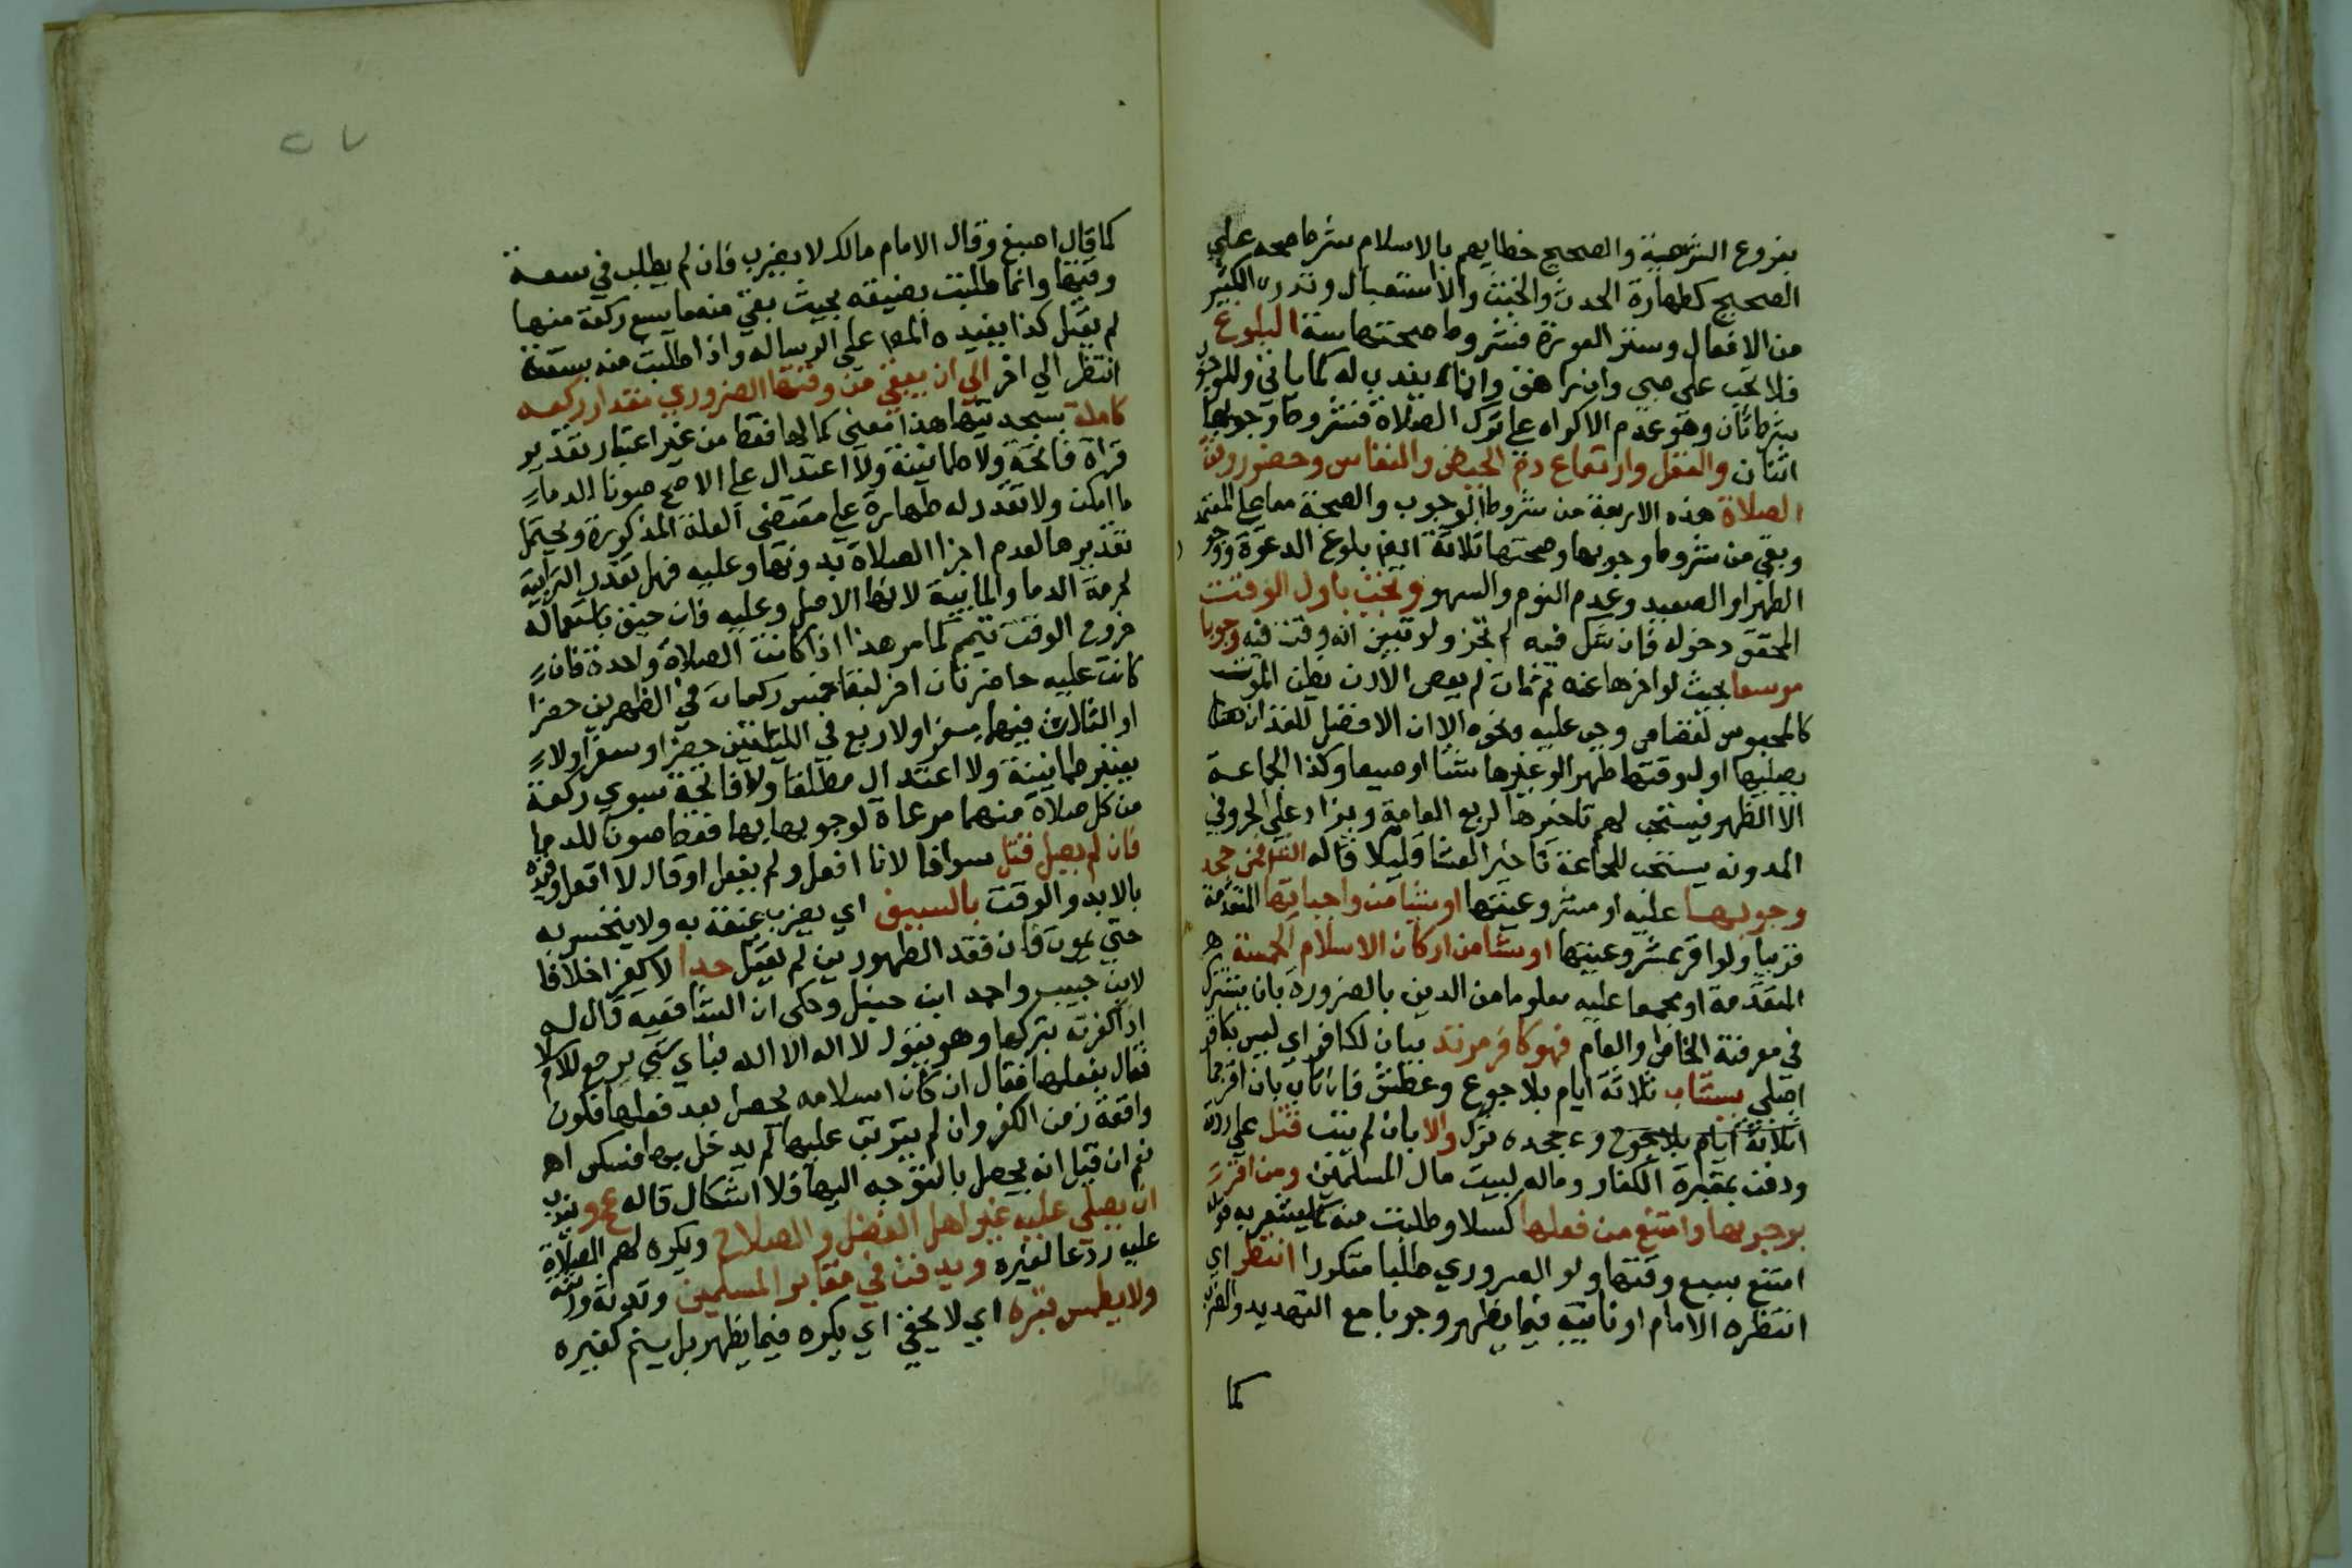 بفروع الشريعة والصحيح خطابهم بالاسلام شرط صحة علي
الصحيح كطهارة الحدث والخبث والاستقبال وترك الكثير
من الافعال وستر العورة فشروط صحتها ستة البلوغ
فلا تجب علي صبي وان راهق وانما يندب له كما ياتي وللوجوب
شرطان وهو عدم الاكراه علي ترك الصلاة فشروط وجوبها
اثنان والعقل وارتفاع دم الحيض والنفاس وحضور وقت
الصلاة هذه الاربعة من شروط الوجوب والصحة معا علي المعتمد
وبقي من شروط وجوبها وصحتها ثلاثة ايضا بلوغ الدعوة ووجود
الطهر او الصعيد وعدم النوم والسهو وتجب باول الوقت
المحقق دخوله فان شك فيه لم تجز ولو تبين انه وقت فيه وجوبا
موسعا بحيث لو اخرها عنه ثم مات لم يعص الا ان يظن الموت
كالمحبوس لقصاص وجب عليه ونحوه الا ان الافضل للفذ ان
يصليها اول وقتها ظهرا او غيرها شتا او صيفا وكذا الجماعة
الا الظهر فيستحب لهم تاخيرها لربع القامة ويزاد علي الحر وفي
المدونه يستحب للجماعة تاخير العشا قليلا قاله فمن جحد
وجوبها عليه او مشروعيتها او شيا من واجباتها المتقدمة
قريبا ولو اقر بمشروعيتها او شيا من اركان الاسلام الخمسة
المتقدمة او مجمعا عليه معلوما من الدين بالضرورة بان يشترك
في معرفته الخاص والعام فهو كافر مرتد بيان لكافر اي ليس بكافر
اصلي يستتاب ثلاثة ايام بلا جوع وعطش فان تاب بان اقر بما
ثلاثة ايام بلا جوع و جحده ترك والا بان لم يتب قتل علي ردته
ودفن بمقبرة الكفار وماله لبيت مال المسلمين ومن اقر
بوجوبها وامتنع من فعلها كسلا وطلبت منه كما يشعر به قوله
امتنع بسع وقتها ولو الضروري طلبا متكررا انتظر اي
انتظره الامام او نائبه فيما يظهر وجوبا مع التهديد والضرب
كما
كما قال اصبغ وقال الامام مالك لا يضرب فان لم يطلب في سعة
وقتها وانما طلبت بضيقه بحيث بقي منه ما يسع ركعة منها
لم يقتل كذا يفيده علي الرساله واذا طلبت منه بسعته
انتظر الي اخر الي ان يبقي من وقتها الضروري مقدار ركعه
كاملة بسجدتيها هذا معني كمالها فقط من غير اعتبار تقدير
قراة فاتحة ولا طمانينة ولا اعتدال علي الاصح صونا للدما
ما امكن ولا تقدر له طهارة علي مقتضي العلة المذكورة ويحتمل
تقديرها لعدم اجزا الصلاة بدونها وعليه فهل تقدر الترابية
لحرمة الدما والمائية لانها الاصل وعليه فان خيف باستعماله
خروج الوقت تيمم كما مر هذا اذا كانت الصلاة واحدة فان
كانت عليه حاضرتان اخر لبقا خمس ركعات في الظهرين حضرا
او الثلاث فيهما سفرا ولاربع في الليلتين حضرا وسفرا ولا
بعتبر طمانينة ولا اعتدال مطلقا ولا فاتحة سوي ركعة
من كل صلاة منهما مرعاة لوجوبها بها فقط صونا للدما
فان لم يصل قتل سوا قال انا افعل ولم يفعل او قال لا افعل وقيده
بالابد والوقت بالسيف اي يضرب عنقه به ولا ينخس به
حتي يموت فان فقد الطهورين لم يقتل حدا لا كفرا خلافا
لابن حبيب واحمد ابن حنبل وحكي ان الشافعيه قال له
اذا كفرته بتركها وهو يقول لا اله الا الله فباي شي يرجع للاسلام
فقال بفعلها فقال ان كان اسلامه يحصل بعد فعلها فتكون
واقعة زمن الكفر وان لم يترتب عليها لم يدخل بها فسكت اه
نعم ان قيل انه يحصل بالتوجه اليها فلا اشكال قاله عج ويندب
ان يصلي عليه غير اهل الفضل والصلاح ويكره لهم الصلاة
عليه ردعا لغيره ويدفن في مقابر المسلمين وتدونه ورثته
ولا يطمس قبره اي لا يخفي اي يكره فيما يظهر بل يسنم كغيره